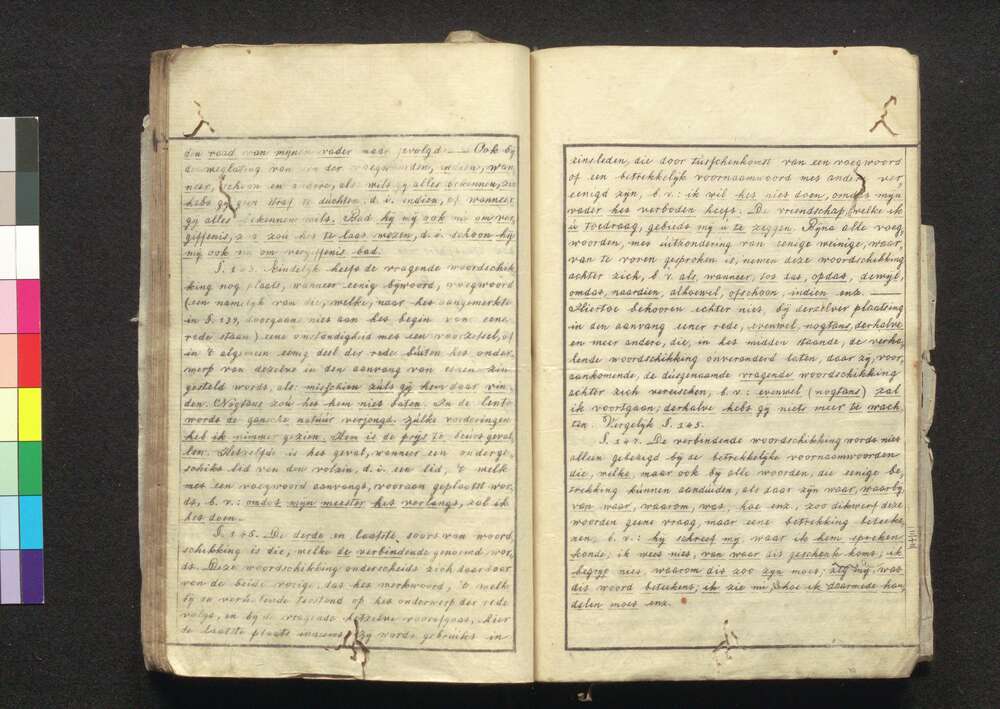 den raad van mijnen vader had gevolgd. — Ook bij
de weglating van der voegwoorden, indien, wan
neer, schoon en andere, als wilt gij alles bekennen, zoo
hebt gij geen straf te duchten, d. i. indien, of wanneer
gij alles bekennen wilt. Bad hij mij ook nu om ver,
giffenis, zoú het te laat wezen, d. i. schoon hij
mij ook nu om vergiffenis bad.
Eindelijk heeft de vragende woordschik
king nog plaats, wanneer eenig bijwoord, voegwoord
(een namelijk van die, welke, naar het aangemerkte
in §. 139, doorgaans niet aan het begin van eene
rede staan) eene omstandigheid met een voorzetsel, of
in 't algemeen eenig deel der rede búiten het onder,
werp van dezelve in den aanvang van eenen zin
gesteld wordt, als misschien zúlt gij hem daar vin,
den. Nogtans zoú het hem niet baten. In de lente
wordt de gansche natúúr verjongd. Zúlke vorderingen
heb ik nimmer gezien. Hem is de prijs te beurt geval
len. Hetzelfde is het geval, wanneer een onderge,
schikt lid van den volzin, d. i. een lid, 't welk
met een voegwoord aanvangt, vooraan geplaatst wor,
dt, b. v.: omdat mijn meester het verlangt, zal ik
het doen.
§. 145. De derde en laatste, soort van woord
schikking is die, welke de verbindende genoemd wor,
dt. Deze woordschikking onderscheidt zich daardoor
van de beide vorige, dat het werkwoord, 't welk
bij de verhalende toestand op het onderwerp der rede
volgt, en bij de vragende hetzelve voorafgaat, hier
de laatste plaats inneemt. Zij wordt gebruikt in
zinsleden, die door tusschenkomst van een voegwoord
of een betrekkelijk voornaamwoord met andere ver,
eenigd zijn, b. v.: ik wil het niet doen, omdat mijn
vader het verboden heeft. De vriendschap, welke ik
ú toedraag, gebiedt mij ú te zeggen. Bijna alle voeg,
woorden, met uitzondering van eenige weinige, waar,
van te voren gesproken is, nemen deze woordschikking
achter zich, b. v. als, wanneer, tot dat, opdat, dewijl,
omdat, naardien, alhoewel, ofschoon, indien enz. —
Hiertoe behooren echter niet, bij derzelver plaatsing
in den aanvang eener rede, evenwel, nogtans, derhalve
en meer andere, die, in het midden staande, de verha,
lende woordschikking onveranderd laten, daar zij, voor,
aankomende, de dusgenaamde vragende woordschikking
achter zich vereischen, b. v.: evenwel (nogtans) zal
ik voortgaan, derhalve hebt gij niets meer te wach
ten. Vergelijk §. 145.
§. 147. De verbindende woordschikking wordt niet
alleen gebezigd bij de betrekkelijke voornaamwoorden
die, welke, maar ook bij alle woorden, die eenige be,
trekking kúnnen aandúiden, als daar zijn waar, waarbij,
van waar, waarom, wat, hoe enz., zoo dikwerf deze
woorden geene vraag, maar eene betrekking beteeke
nen, b. v.: hij schreef mij, waar ik hem spreken
konde; ik weet niet, van waar dit geschenk komt; ik
begrijp niet, waarom dit zoo zijn moet; zeg mij, wat
dit woord beteekent; ik zie nu, hoe ik daarmede han,
delen moet enz.